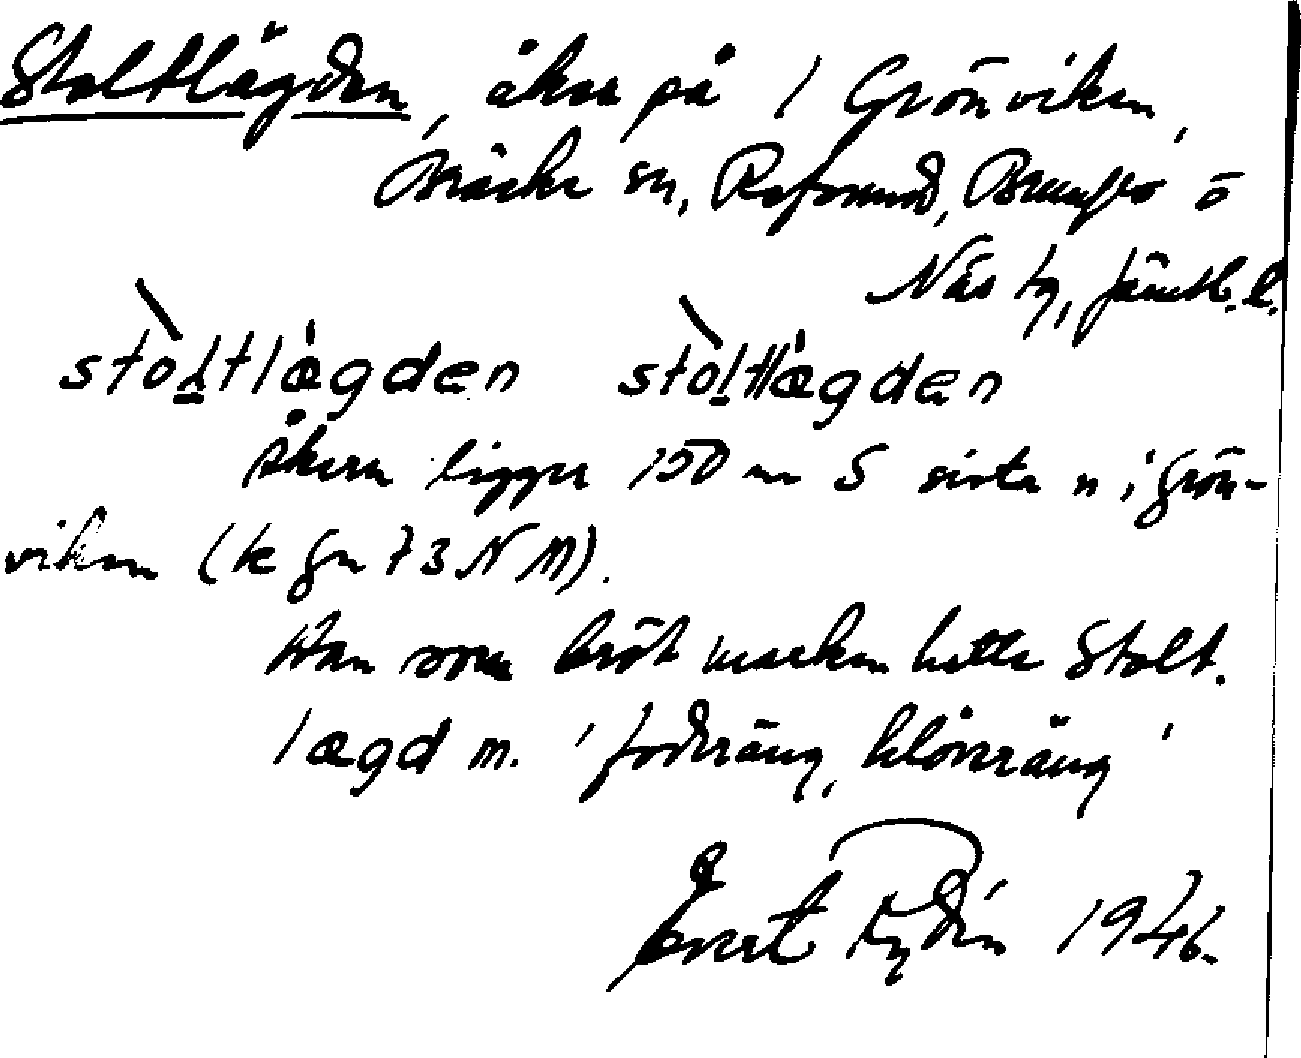 Stoltlägden, åker på 1 Grönviken,
Bräcke sn, Refsund, Brunflo o
Näs tg, Jämtl. l.
stoḷtlægden stoḷtlægden
Åkern ligger 150 m S sista n i Grön-
viken (k gn 73 NM).
Han som bröt marken hette Stolt.
lægd m. 'foderäng, klöveräng'
Evert Rydin 1946.